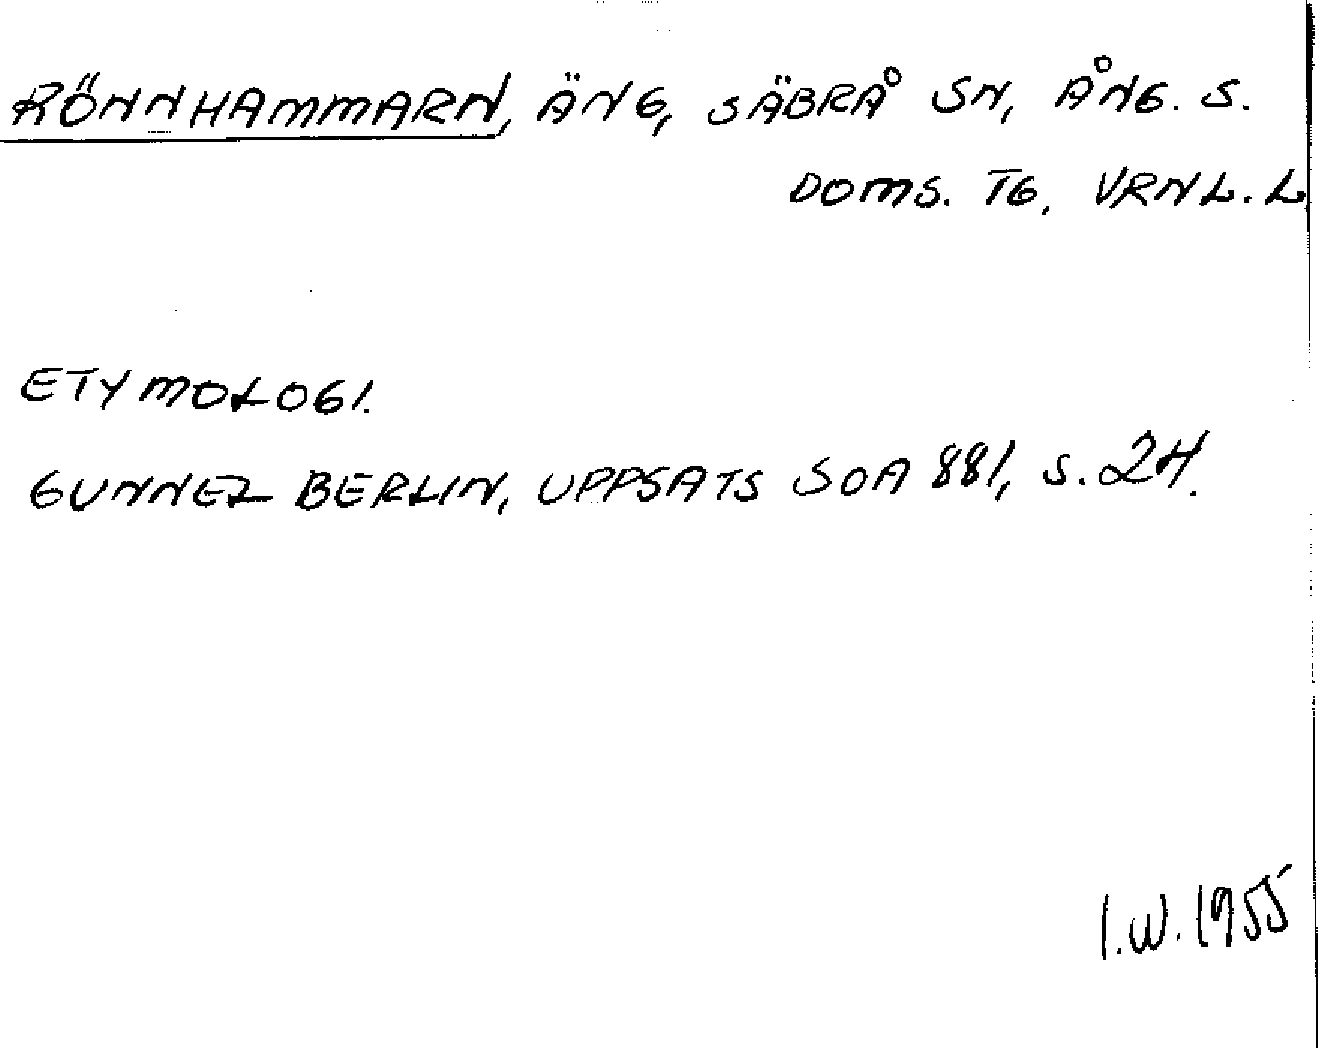 RÖNNHAMMARN, ÄNG, SÄBRÅ SN, ÅNG. S.
DOMS. TG, VRNL. L
ETYMOLOGI.
GUNNEL BERLIN, UPPSATS SOA 881, S. 24.
I.W. 1955